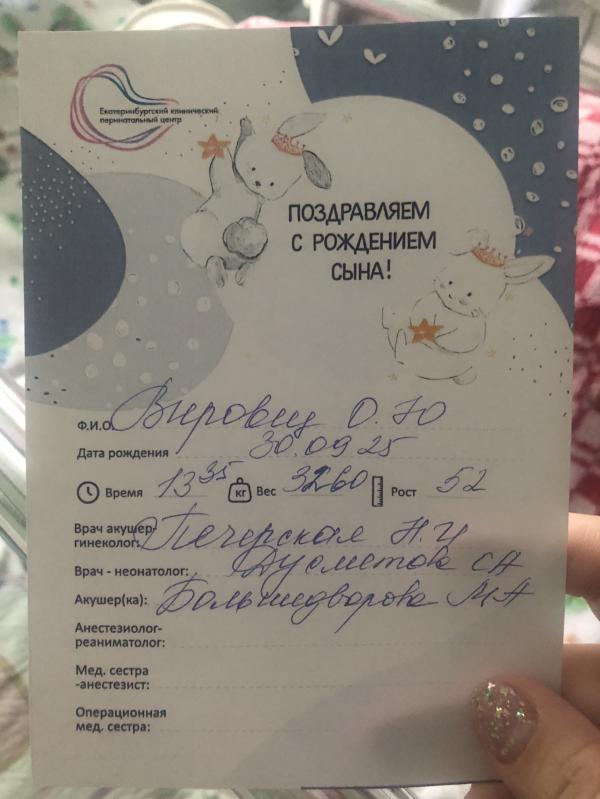 Екатеринбургский клинический
перинатальный центр
ПОЗДРАВЛЯЕМ
С РОЖДЕНИЕМ
СЫНА!
Ф.И.О. Вировец О.Ю
Дата рождения 30.09.25
Время 13 35 кг Вес 3260 Рост 52
Врач акушер-
гинеколог: Печерская Н.И
Врач - неонатолог: Дусметова СА
Акушер(ка): Большедворова МА
Анестезиолог-
реаниматолог:
Мед. сестра
-анестезист:
Операционная
мед. сестра: